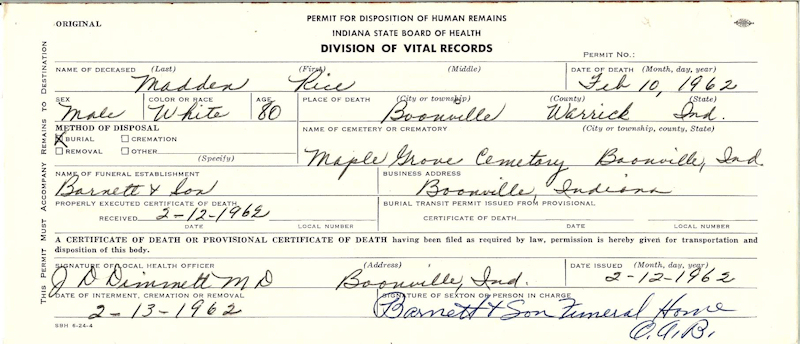 ORIGINAL
PERMIT FOR DISPOSITION OF HUMAN REMAINS
INDIANA STATE BOARD OF HEALTH
DIVISION OF VITAL RECORDS
PERMIT NO.:
THIS PERMIT MUST ACCOMPANY REMAINS TO DESTINATION
NAME OF DECEASED (Last) (First) (Middle) DATE OF DEATH (Month, day, year)
Madden Rice Feb 10, 1962
SEX COLOR OR RACE AGE PLACE OF DEATH (City or township) (County) (State)
Male White 80 Boonville Warrick Ind.
METHOD OF DISPOSAL NAME OF CEMETERY OR CREMATORY (City or township, county, State)
X BURIAL CREMATION
REMOVAL OTHER
(Specify)
Maple Grove Cemetery Boonville, Ind.
NAME OF FUNERAL ESTABLISHMENT BUSINESS ADDRESS
Barnett & Son Boonville, Indiana
PROPERLY EXECUTED CERTIFICATE OF DEATH BURIAL TRANSIT PERMIT ISSUED FROM PROVISIONAL
RECEIVED 2-12-1962 CERTIFICATE OF DEATH
DATE LOCAL NUMBER DATE LOCAL NUMBER
A CERTIFICATE OF DEATH OR PROVISIONAL CERTIFICATE OF DEATH having been filed as required by law, permission is hereby given for transportation and
disposition of this body.
SIGNATURE OF LOCAL HEALTH OFFICER (Address) DATE ISSUED (Month, day, year)
J D Dimmett MD Boonville, Ind. 2-12-1962
DATE OF INTERMENT, CREMATION OR REMOVAL SIGNATURE OF SEXTON OR PERSON IN CHARGE
2-13-1962 Barnett & Son Funeral Home
C.A.B.
SBH 6-24-4